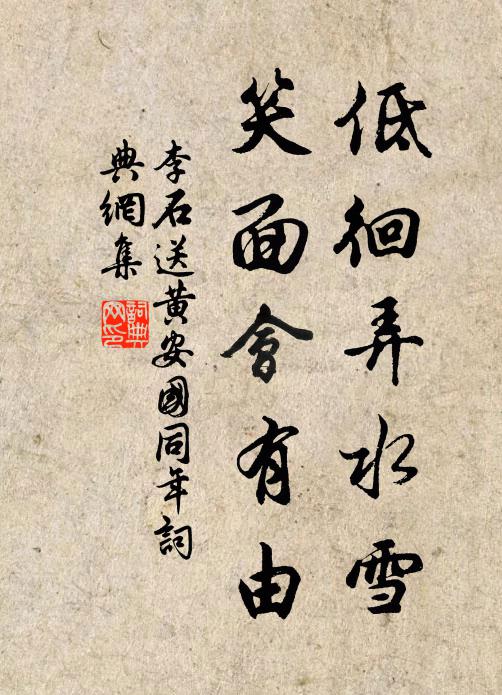 低徊弄水雪
笑面會有由
李石送黄安國同年詞
典網集
詞典
网印